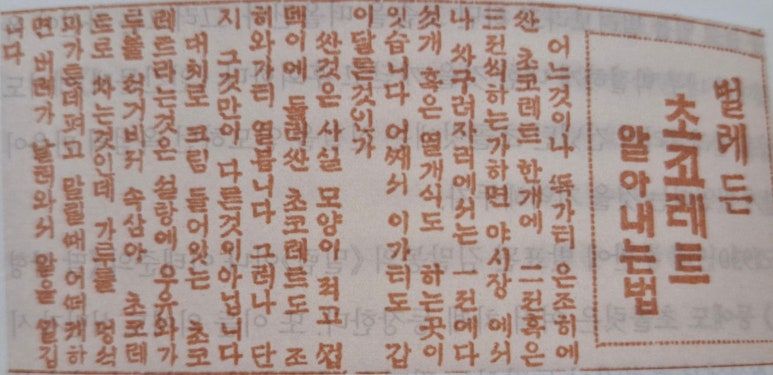 벌레 든
초꼬레트
알아내는법
어느것이나 똑가티 은조히에
싼 초코레트 한개에 二전혹은
三전씩하는가하면 야시장에서
나 싸구려자리에서는 一전에다
섯개 혹은 열개식도 하는곳이
잇습니다 어째서 이가티도 갑
이달른것인가
싼것은 사실 모양이 적고 껍
덱이에 둘러싼 초코레트도 조
히와가티 엷븝니다 그러나 단
지 그것만이 다른것이아닙니다
대체로 크림 들어있는 초코
레트라는것은 설랑에 우유와가
루를 석거비저 속삼아 초코레
트로 싸는것인데 가루를 멍석
가튼데펴고 말릴때 어떠케하
면 버레가 날러와서 알을 깔김
니다